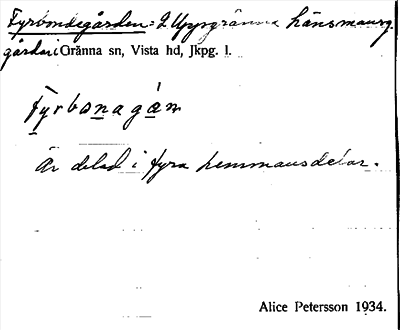 Fyrbondegården: 2 Uppgränna Länsmansg.
gården i Gränna sn, Vista hd, Jkpg. l.
Fyrbonagán
Är delad i fyra hemmansdelar.
Alice Petersson 1934.